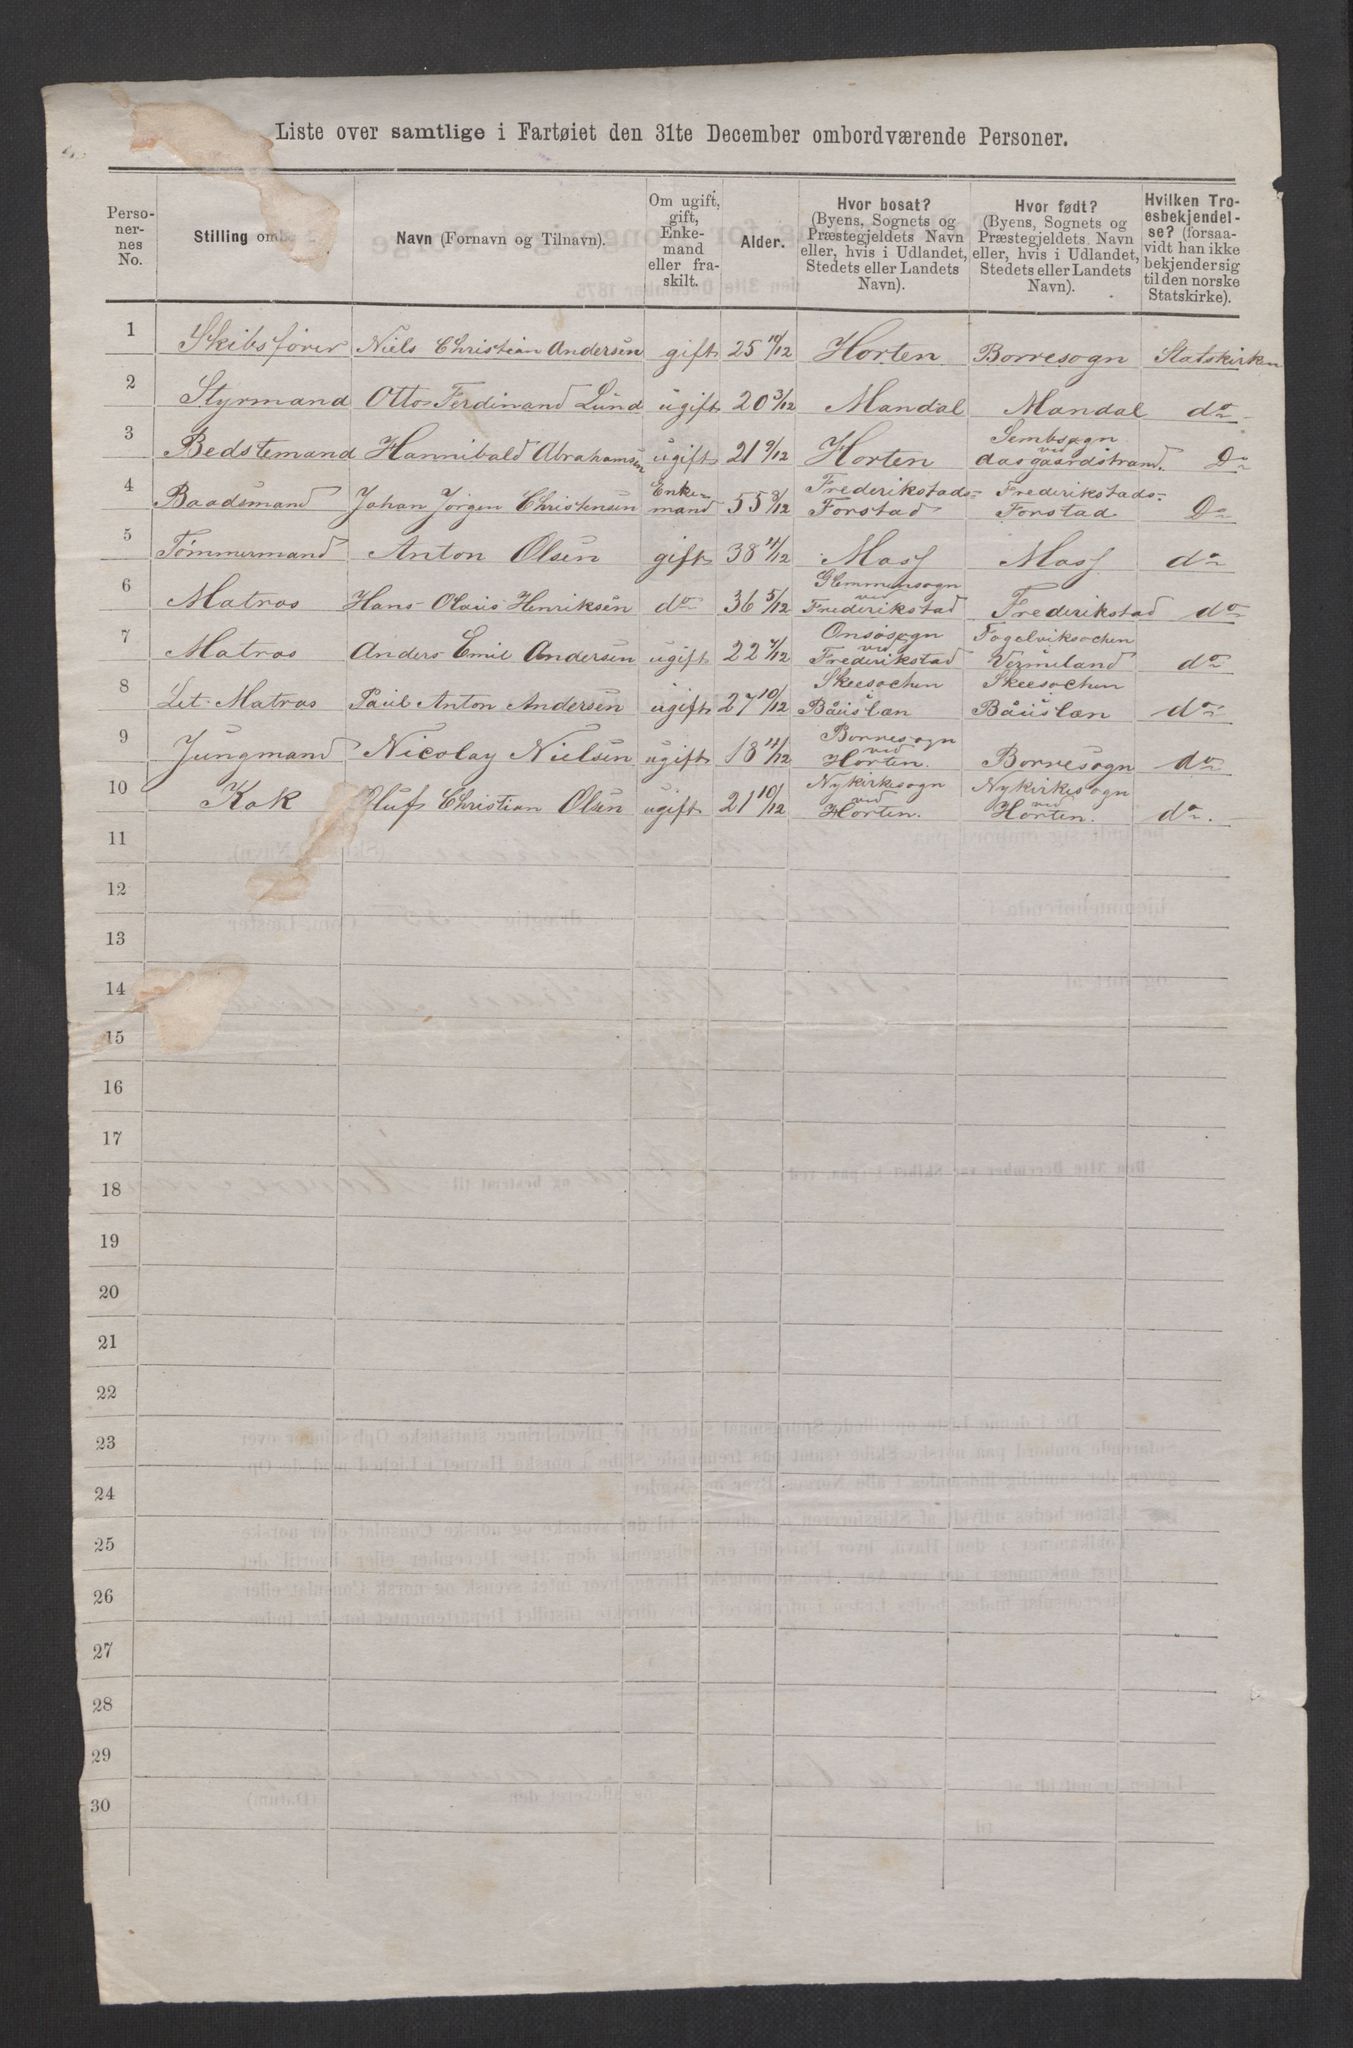 Liste over samtlige i Fartøiet den 31te December ombordværende Personer.
Perso-
ner-
nes
No.
Stilling ombo
Navn (Fornavn og Tilnavn).
Om ugift,
gift,
Enke-
mand
eller fra-
skilt.
Alder.
Hvor bosat?
(Byens, Sognets og
Præstegjeldets Navn
eller, hvis i Udlandet,
Stedets eller Landets
Navn).
Hvor født?
(Byens, Sognets og
Præstegjeldets Navn
eller, hvis i Udlandet,
Stedets eller Landets
Navn).
Hvilken Tro-
esbekjendel-
se? (forsaa-
vidt han ikke
bekjender sig
til den norske
Statskirke).
1 Skibsfører Niels Christian Andersen gift 25 Horten Borresogn Statskirken
2 Styrmand Otto Ferdinand Lund ugift 20 3/12 Mandal Mandal do
3 Bedstemand Hannibald Abrahamsen ugift 21 9/12 Horten Sembsogn ved Aasgaardstrand. Do
4 Baadsmand Johan Jörgen Christensen Enke-mand 55 8/12 Frederikstads-Forstad Frederikstads-Forstad Do
5 Tömmermand Anton Olsen gift 38 11/12 Moss Moss do
6 Matros Hans Olaus Henriksen do 36 5/12 Glemmensogn ved Frederikstad Frederikstad do
7 Matros Anders Emil Andersen ugift 22 7/12 Onsösogn ved Frederikstad Fogelviksochen Vermeland do
8 Let. Matros Paul Anton Andersen ugift 27 10/12 Skeesochen i Båuslæn Skeesochen Båuslæn do
9 Jungmand Nicolay Nielsen ugift 18 11/12 Borresogn ved Horten. Borresogn do
10 Kok Oluf Christian Olsen ugift 21 10/12 Nykirkesogn ved Horten. Nykirkesogn ved Horten. do.
11
12
13
14
15
16
17
18
19
20
21
22
23
24
25
26
27
28
29
30